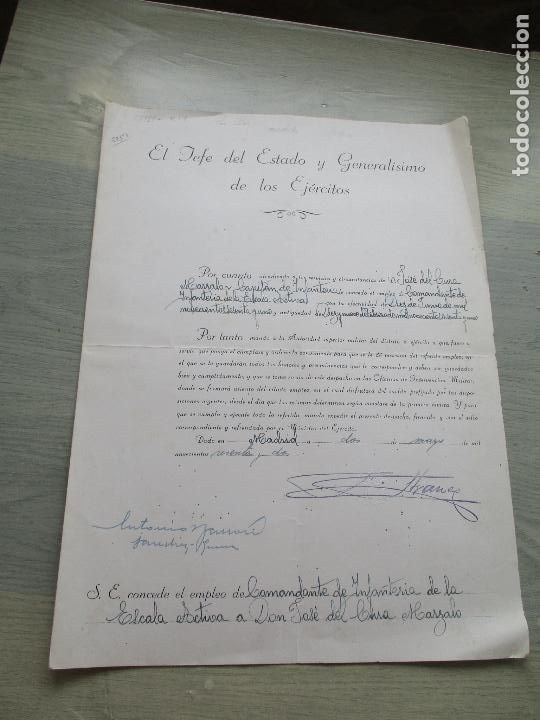 El Jefe del Estado y Generalísimo
de los Ejércitos
Por cuanto atendiendo a los servicios y circunstancias de D. José del Cura
Marzalo Capitán de Infantería he concedido el empleo de Comandante de
Infantería de la Escala Activa con la efectividad de tres de Junio de mil
novecientos sesenta y uno, y antigüedad de
Por tanto mando a la Autoridad superior militar del distrito o ejército a que fuere a
servir, que ponga el cumplase y ordene lo conveniente para que se le dé posesión del referido empleo, en
el que se le guardarán todos los honores y preeminencias que le corresponden y deben ser guardados
bien y cumplidamente, y que se tome razón de este despacho en las Oficinas de Intervención Militar,
donde se formará asiento del citado empleo, en el cual disfrutará del sueldo prefijado por las dispo-
siciones vigentes, desde el día que las mismas determinen según conclare de la primera revista. Y para
que se cumpla y ejecute todo lo referido, mando expedir el presente despacho, firmado y con el sello
correspondiente y refrendado por el Ministro del Ejército.
Dado en Madrid a dos de mayo de mil
novecientos sesenta y dos
Antonio
Sánchez-
S. E. concede el empleo de Comandante de Infantería de la
Escala Activa a Don José del Cura Marzalo
todocoleccion.net